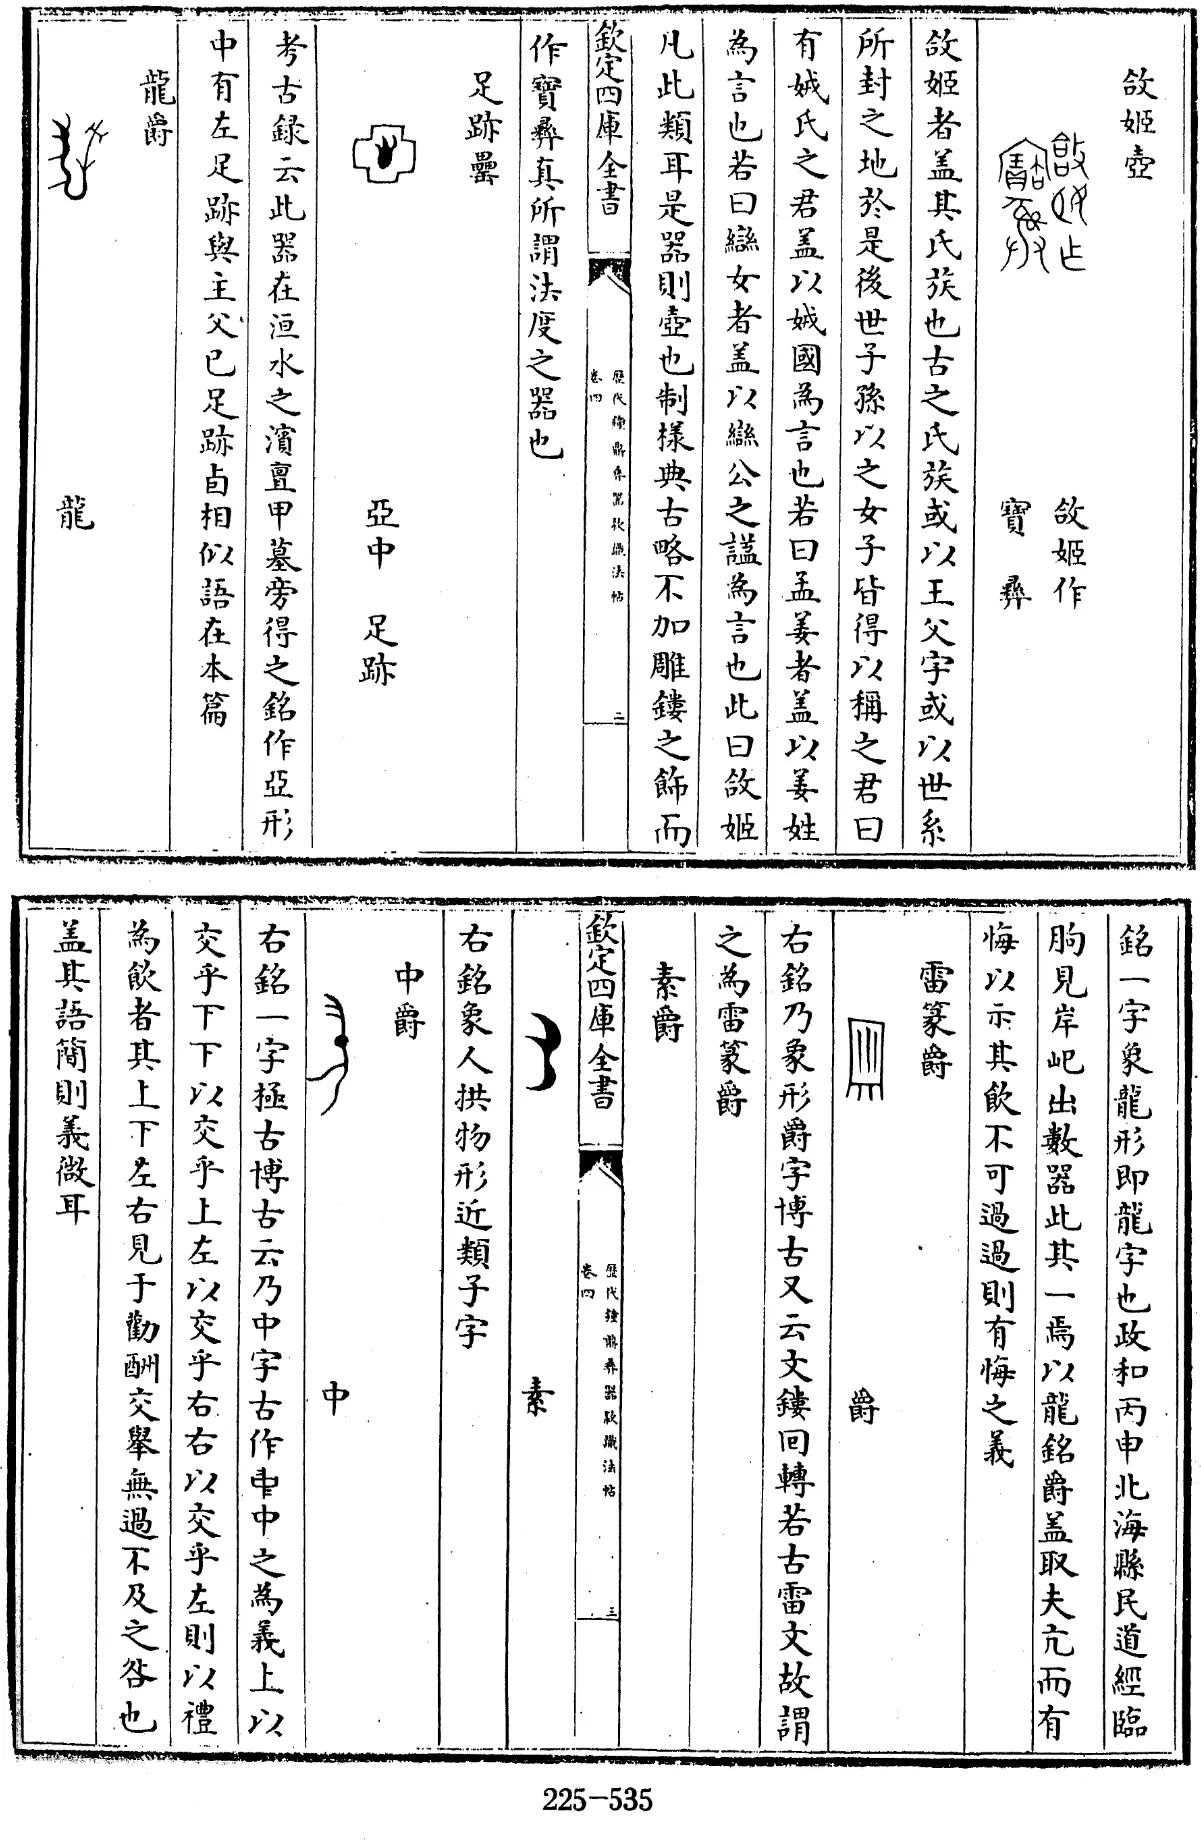 敆姬壺
敆姬作
寶彞
敆姬者盖其氏族也古之氏族或以王父字或以世系
所封之地於是後世子孫以之女子皆得以稱之君曰
有娀氏之君盖以娀國為言也若曰孟姜者盖以姜姓
為言也若曰繺女者盖以繺公之諡為言也此曰敆姬
凡此類耳是器則壺也制様典古略不加雕鏤之飾而
欽定四庫全書
歷代鐘鼎彞器款識法帖
卷四
二
作寶彞真所謂法度之器也
足跡罍
亞中 足跡
考古録云此器在洹水之濱亶甲墓旁得之銘作亞形
中有左足跡與主父已足跡卣相似語在本篇
龍爵
龍
銘一字象龍形即龍字也政和丙申北海縣民道經臨
朐見岸圮出數器此其一焉以龍銘爵盖取夫亢而有
悔以示其飲不可過過則有悔之義
雷篆爵
爵
右銘乃象形爵字博古又云文鏤回轉若古雷文故謂
之為雷篆爵
素爵
欽定四庫全書
歷代鐘鼎彞器款識法帖
卷四
三
素
右銘象人拱物形近類子字
中爵
中
右銘一字極古博古云乃中字古作中之為義上以
交乎下下以交乎上左以交乎右右以交乎左則以禮
為飲者其上下左右見于勸酬交舉無過不及之咎也
盖其語簡則義微耳
225-535